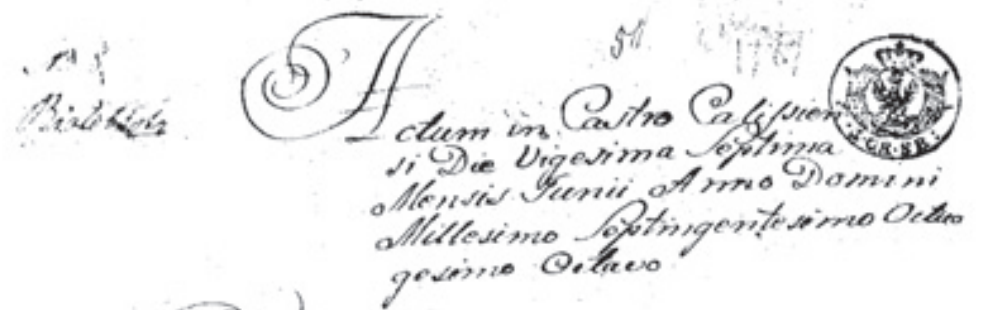 Actum in Castro Calissien
si Die Vigesima Septima
Mensis Junii Anno Domini
Millesimo Septingentesimo Octua
gesimo Octavo